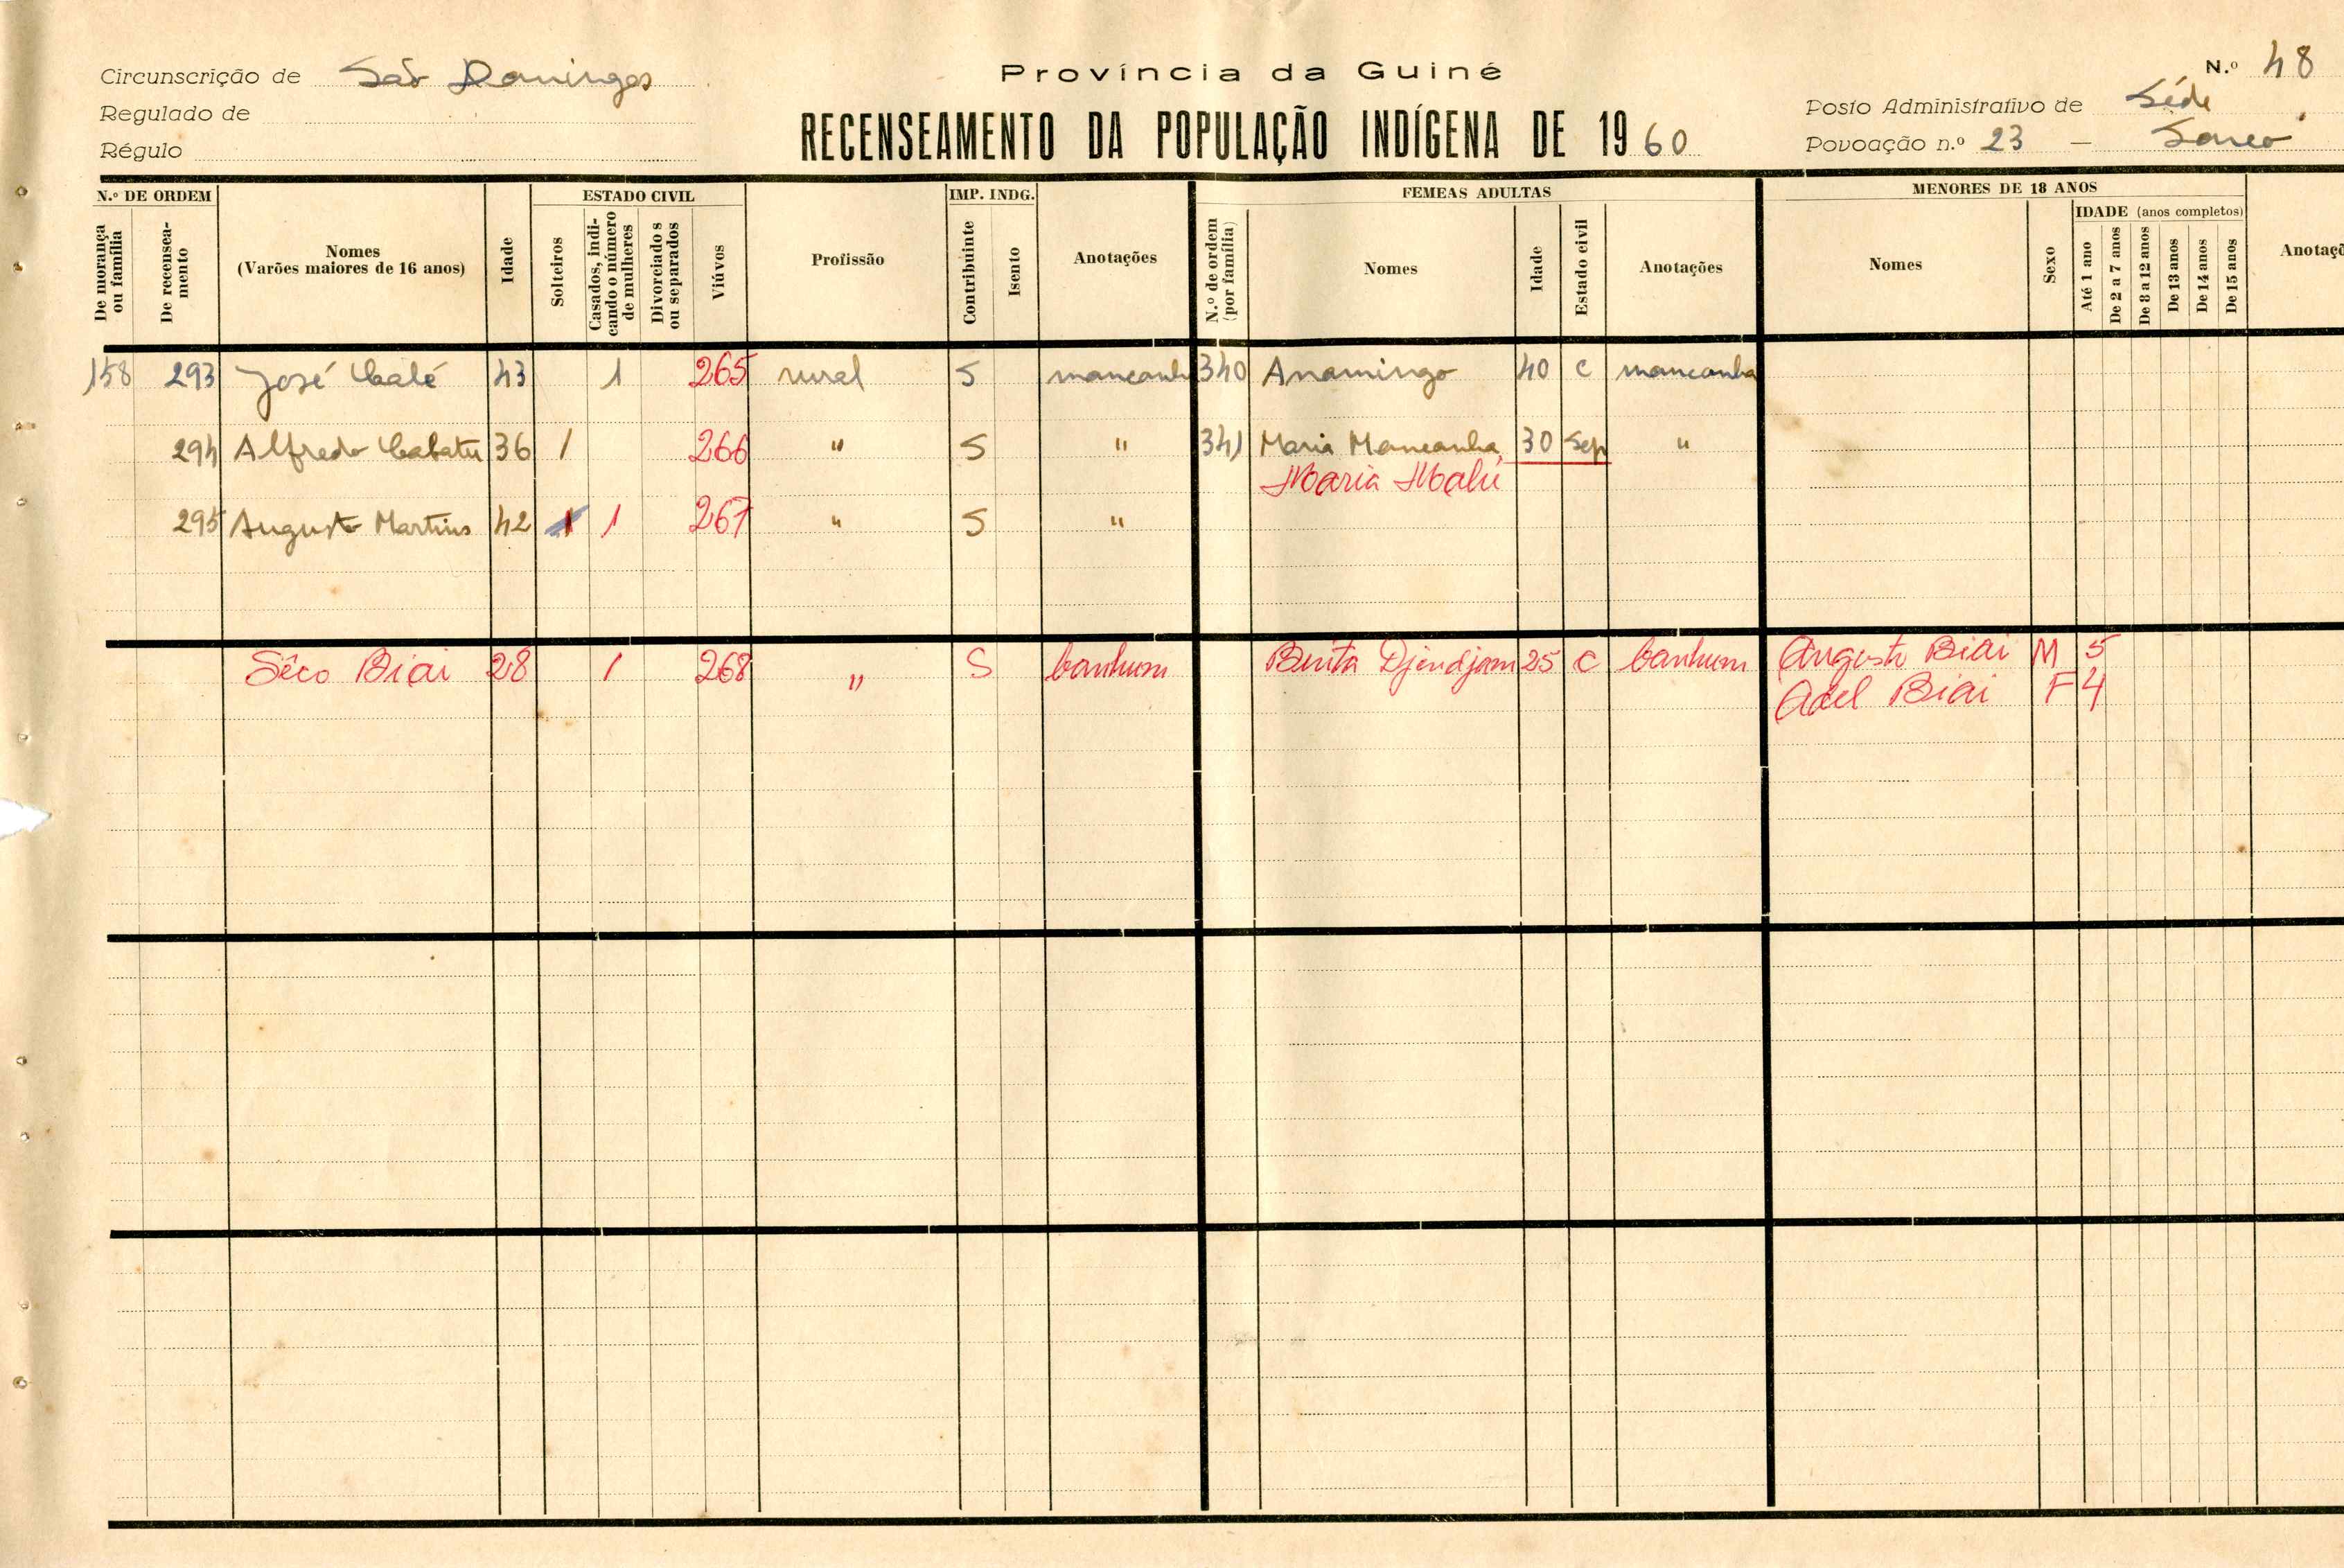 Circunscrição de São Domingos
Regulado de
Régulo
Província da Guiné
RECENSEAMENTO DA POPULAÇÃO INDÍGENA DE 1960
N.º 48
Posto Administrativo de Séde
Povoação n.º 23 —
N.º DE ORDEM
De morança ou família
De recenseamento
Nomes
(Varões maiores de 16 anos)
Idade
ESTADO CIVIL
Solteiros
Casados, indicando o número de mulheres
Divorciados ou separados
Viúvos
Profissão
IMP. INDG.
Contribuinte
Isento
Anotações
FEMEAS ADULTAS
N.º de ordem (por família)
Nomes
Idade
Estado civil
Anotações
MENORES DE 18 ANOS
Nomes
Sexo
IDADE (anos completos)
Até 1 ano
De 2 a 7 anos
De 8 a 12 anos
De 13 anos
De 14 anos
De 15 anos
Anotaç
158 293 José 43 1 265 rural S mancanh 340 Anamingo 40 c mancanha
294 Alfredo 36 1 266 " S " 341 Maria Mancanha 30 Sep "
Maria Malú
295 Augusto Martins 42 1 1 267 " S "
Sêco Biai 28 1 268 " S banhum Binta Djendjam 25 c banhum Augusto Biai M 5
Adel Biai F 4